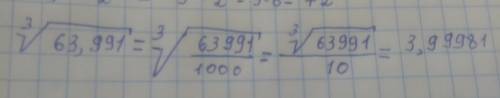 ∛63,991 = ∛(63991/1000) = ∛63991/10 = 3,99981